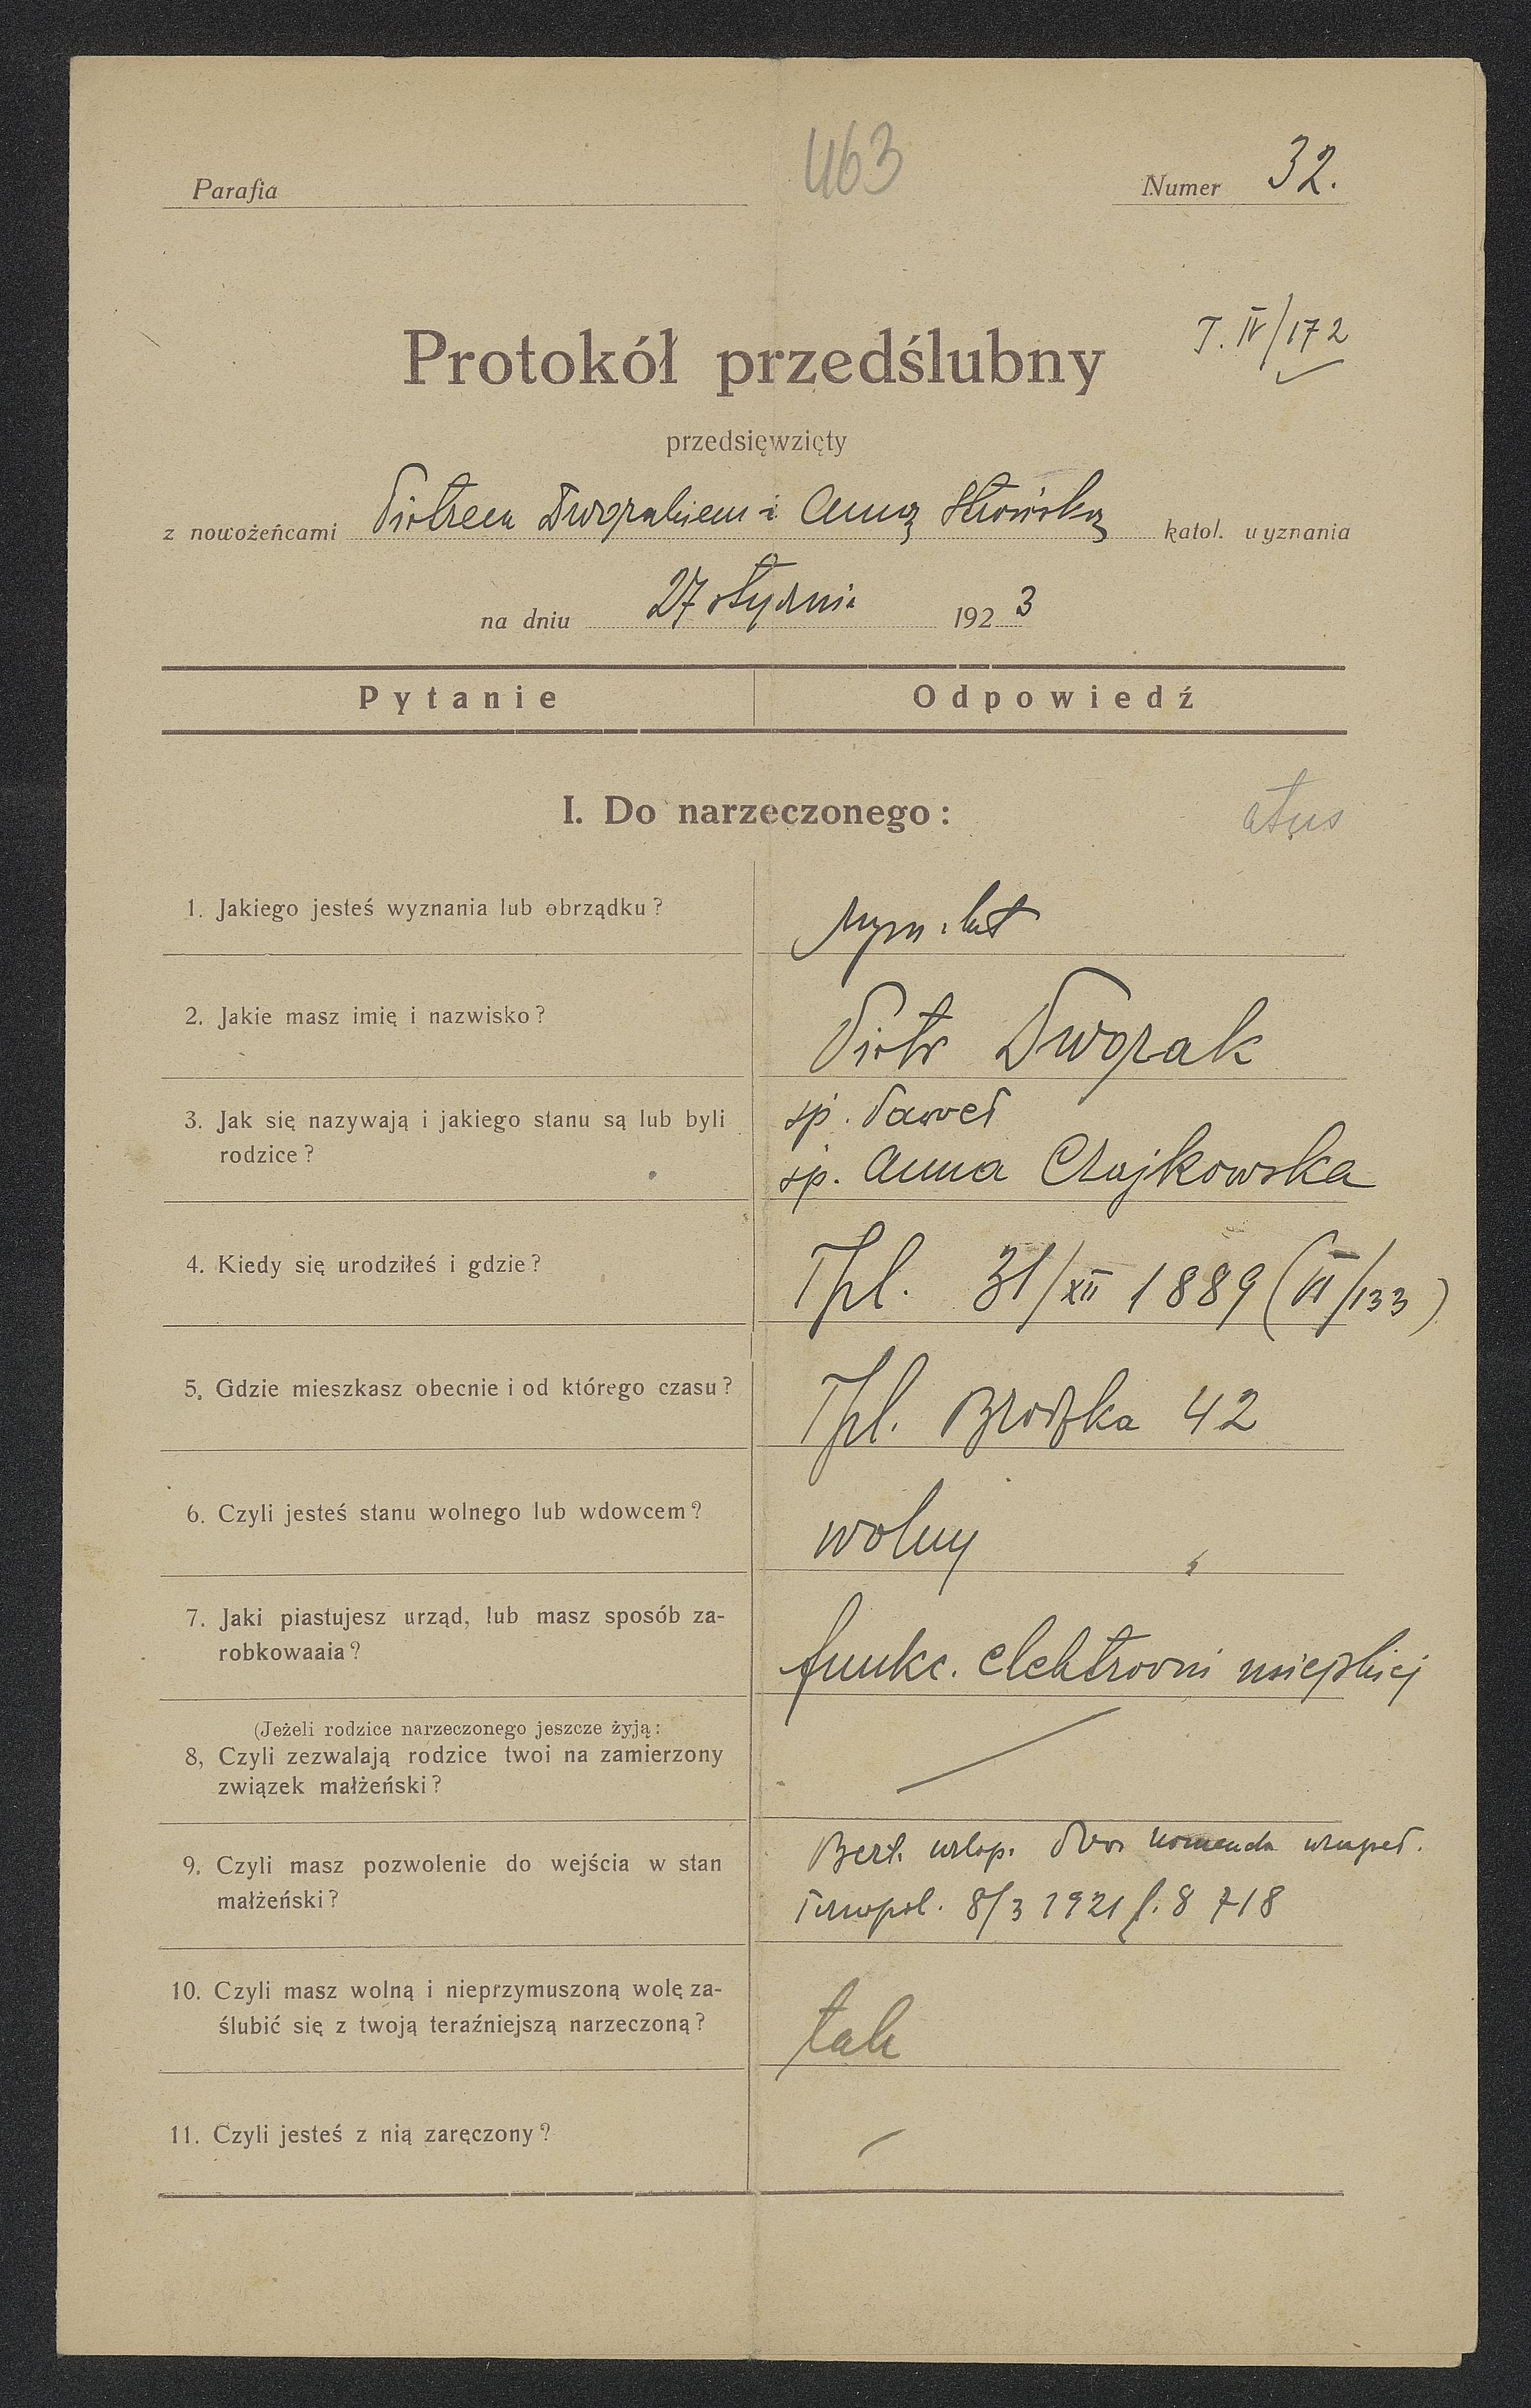 463
Parafia
Numer 32.
T. IV/172
Protokół przedślubny
przedsięwzięty
z nowożeńcami Piotrem Dworakiem i Anną katol. wyznania
na dniu 27 stycznia 1923
Pytanie Odpowiedź
I. Do narzeczonego:
1. Jakiego jesteś wyznania lub obrządku? rzym. łat
2. Jakie masz imię i nazwisko? Piotr Dworak
3. Jak się nazywają i jakiego stanu są lub byli śp. Paweł
rodzice? śp. Anna Czajkowska
4. Kiedy się urodziłeś i gdzie? Tpl. 31/XII 1889 (VI/133)
5. Gdzie mieszkasz obecnie i od którego czasu? Tpl. 42
6. Czyli jesteś stanu wolnego lub wdowcem? wolny
7. Jaki piastujesz urząd, lub masz sposób za-
robkowaaia? funkc. elektrowni miejskiej
(Jeżeli rodzice narzeczonego jeszcze żyją:
8, Czyli zezwalają rodzice twoi na zamierzony
związek małżeński?
9. Czyli masz pozwolenie do wejścia w stan Bezt. urlop. Pow. komenda uzupeł.
małżeński? Tarnopol. 8/3 1921 l. 8718
10. Czyli masz wolną i nieprzymuszoną wolę za-
ślubić się z twoją teraźniejszą narzeczoną? tak
11. Czyli jesteś z nią zaręczony?